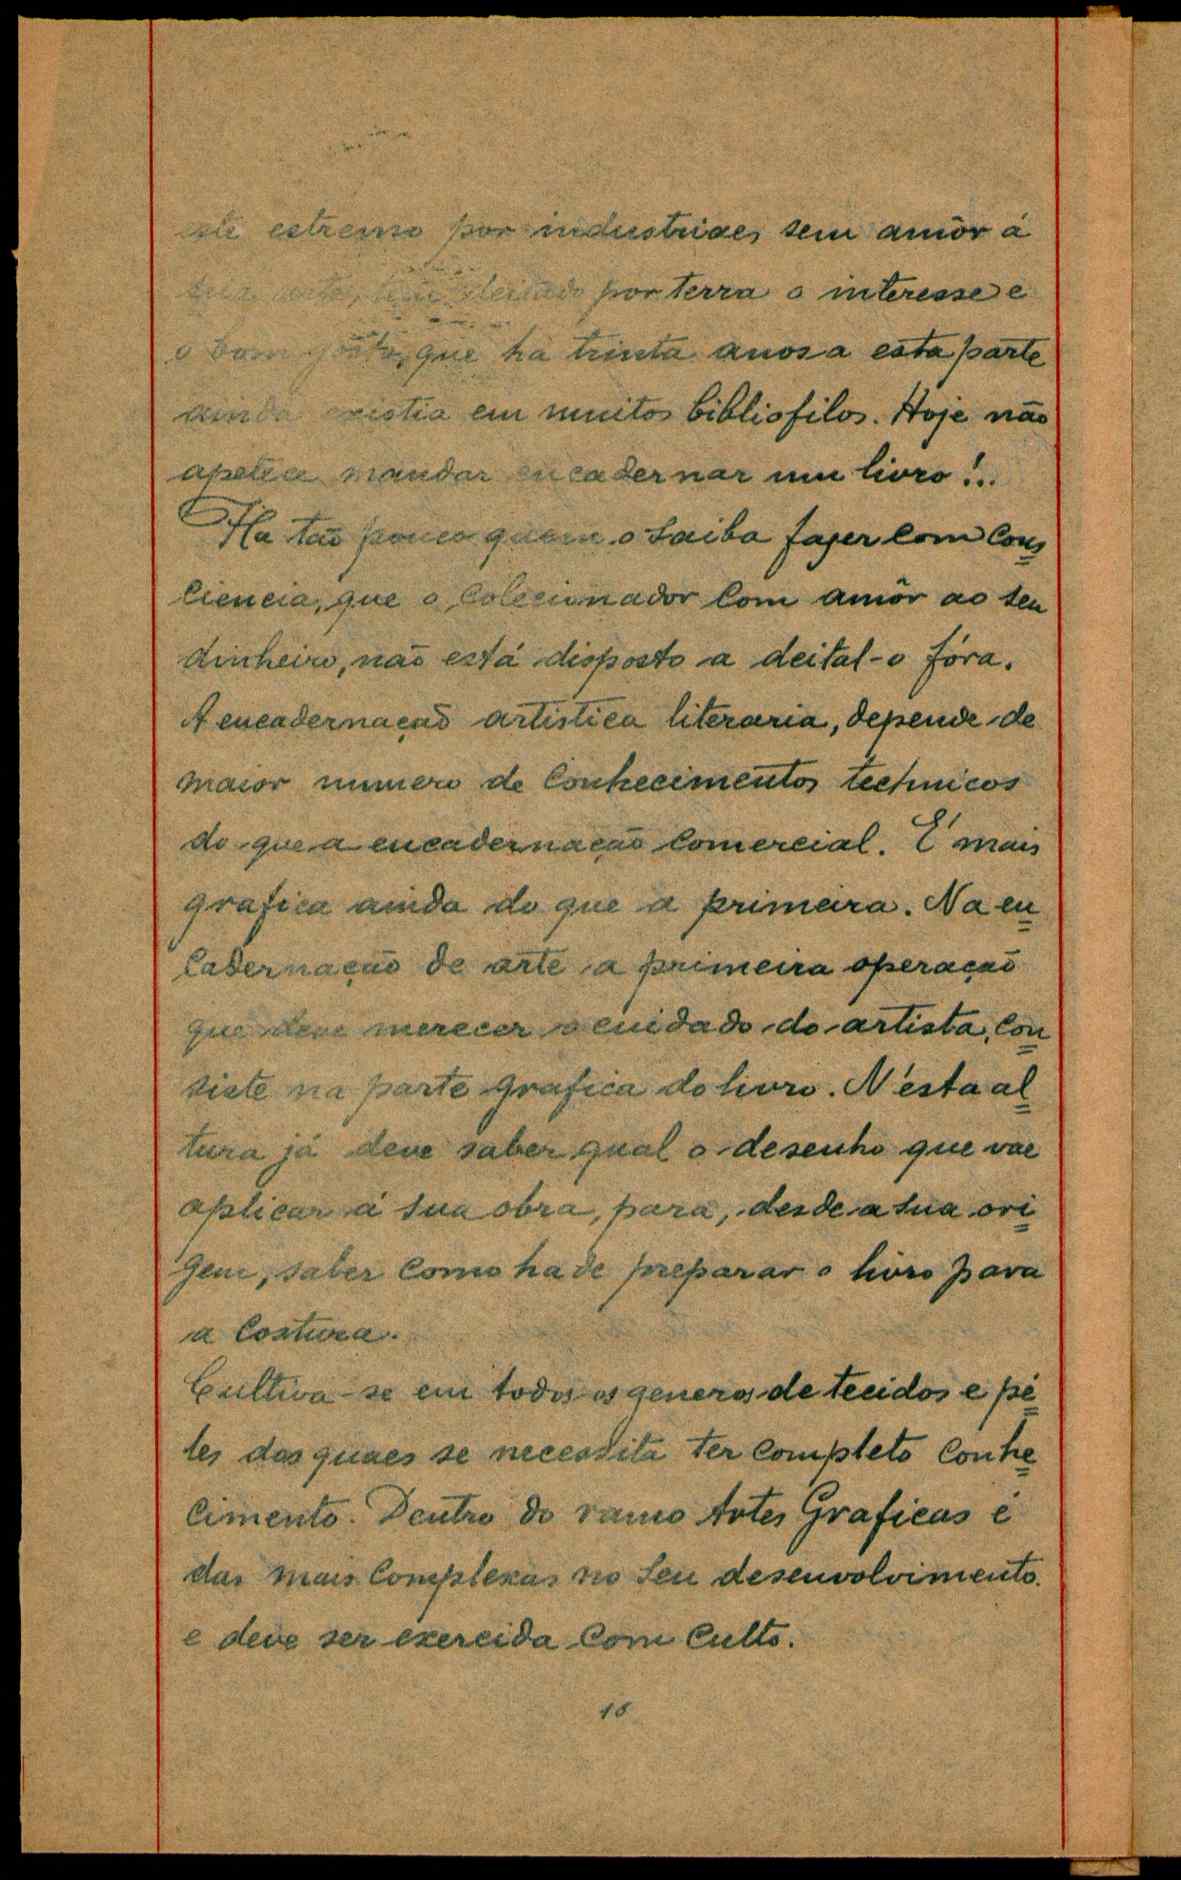 este estremo por industriaes sem amôr á
sua arte, tem deitado por terra o interesse e
o bom gôsto, que ha trinta anos a esta parte
ainda existia em muitos bibliofilos. Hoje não
apetece mandar encadernar um livro!..
Ha tão pouco quem o saiba fazer com cons
ciencia, que o colecionador com amôr ao seu
dinheiro, não está disposto a deital-o fóra.
A encadernação artistica literaria, depende de
maior numero de conhecimentos technicos
do que a encadernação comercial. É mais
grafica ainda do que a primeira. Na en
cadernação de arte a primeira operação
que deve merecer o cuidado do artista, con
siste na parte grafica do livro. N'esta al
tura já deve saber qual o desenho que vae
aplicar á sua obra, para, desde a sua ori
gem, saber como ha de preparar o livro para
a costura.
Cultiva-se em todos os generos de tecidos e pé
les dos quaes se necessita ter completo conhe
cimento. Dentro do ramo Artes Graficas é
das mais complexas no seu desenvolvimento.
e deve ser exercida com culto.